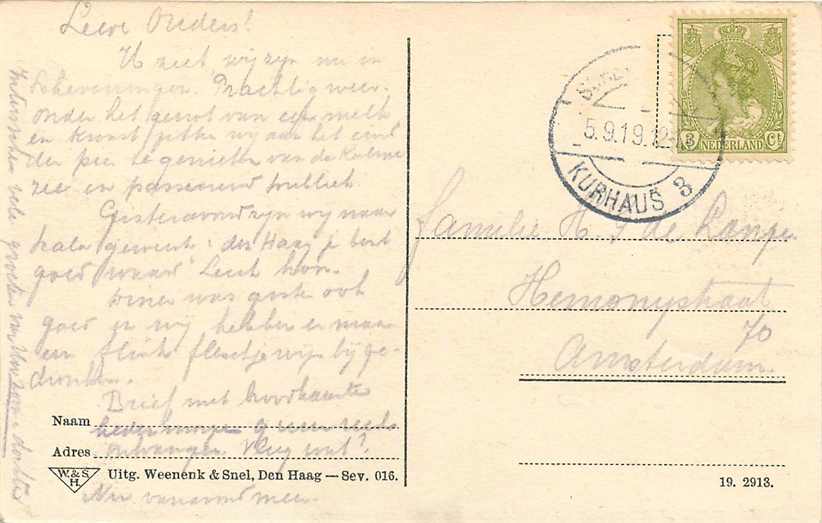 Lieve Ouders!
U ziet wij zijn nu in
Scheveningen. Prachtig weer.
onder het genot van een melk
en wij aan het eind
der pier te genieten van de kalme
zee en passeerend publiek
Gisteravond zijn wij naar
geweest: den Haag je best
goed waard
Diner was goed ook
goed en wij hebben er maar
een flink fleschje wijn bij ge-
dronken.
Brief met
ontvangen
Nu vanavond meer.
vele groeten van Uw zoon & dochter
Naam
Adres
W. & S.
H.
Uitg. Weenenk & Snel, Den Haag — Sev. 016.
5.9.19.12
KURHAUS 3
3 NEDERLAND Ct
familie H. J. de Lange
Hemonystraat
70
Amsterdam.
19. 2913.